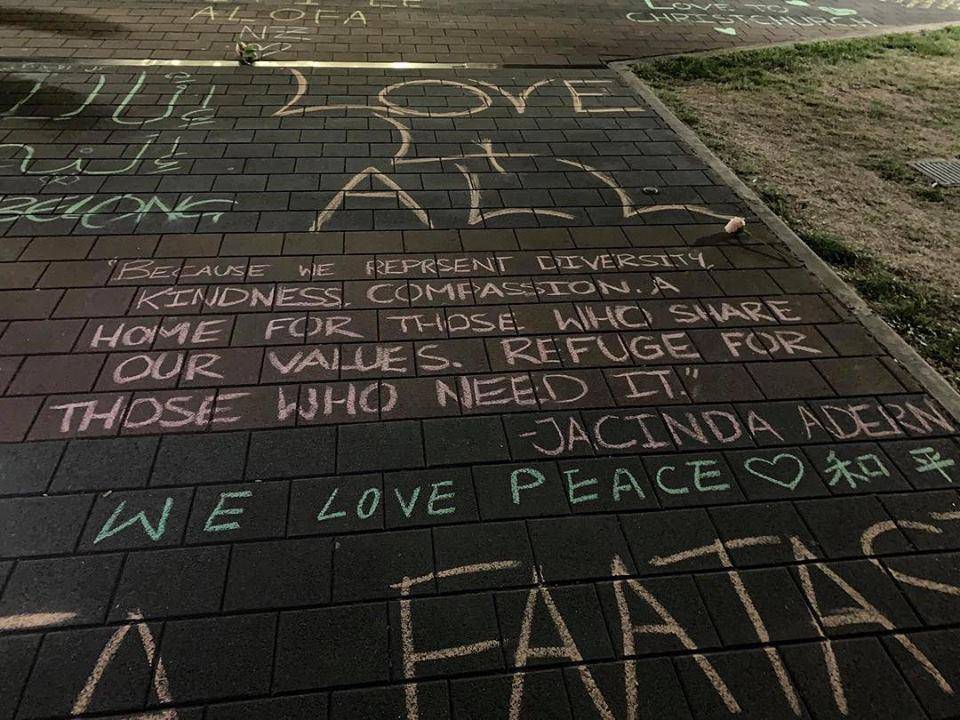 ALOFA
LOVE TO
CHRISTCHURCH
NZ
LOVE
ALL
BELONG
"BECAUSE WE REPRSENT DIVERSITY,
KINDNESS. COMPASSION. A
HOME FOR THOSE WHO SHARE
OUR VALUES. REFUGE FOR
THOSE WHO NEED IT."
-JACINDA ADERN
WE LOVE PEACE ♡ 和平
FAATAS